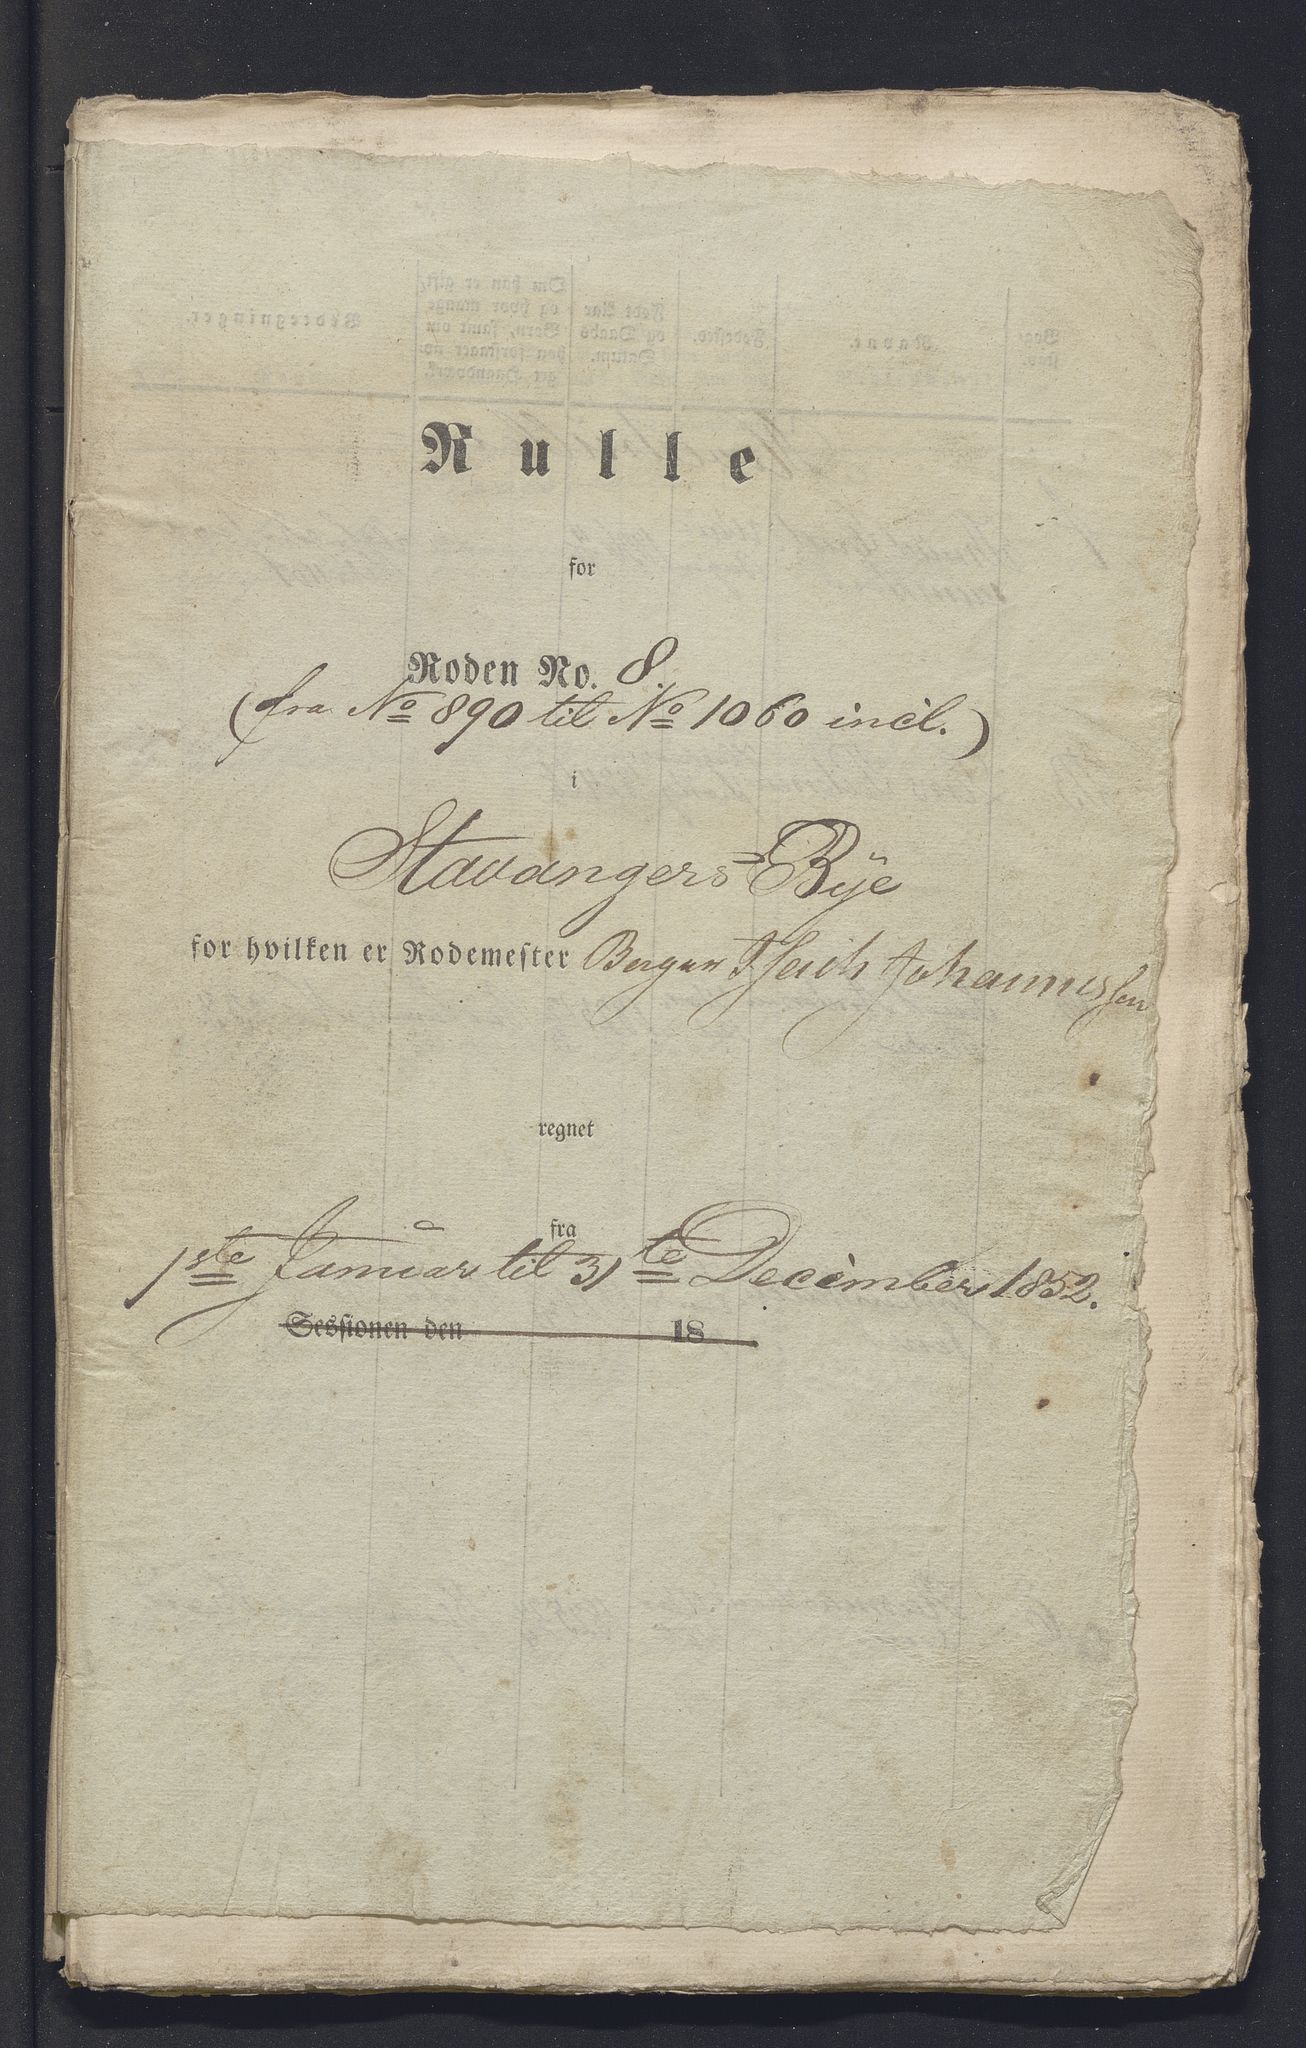 Rulle
for
Roden No. 8.
(fra No 890 til No 1060 incl.)
i
Stavangers Bye
for hvilken er Rodemester Johannessen
regnet
fra
1ste Januar til 31te December 1852.
Sessionen den 18